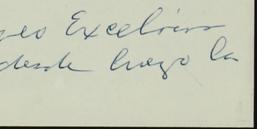 Excelsior
desde luego la